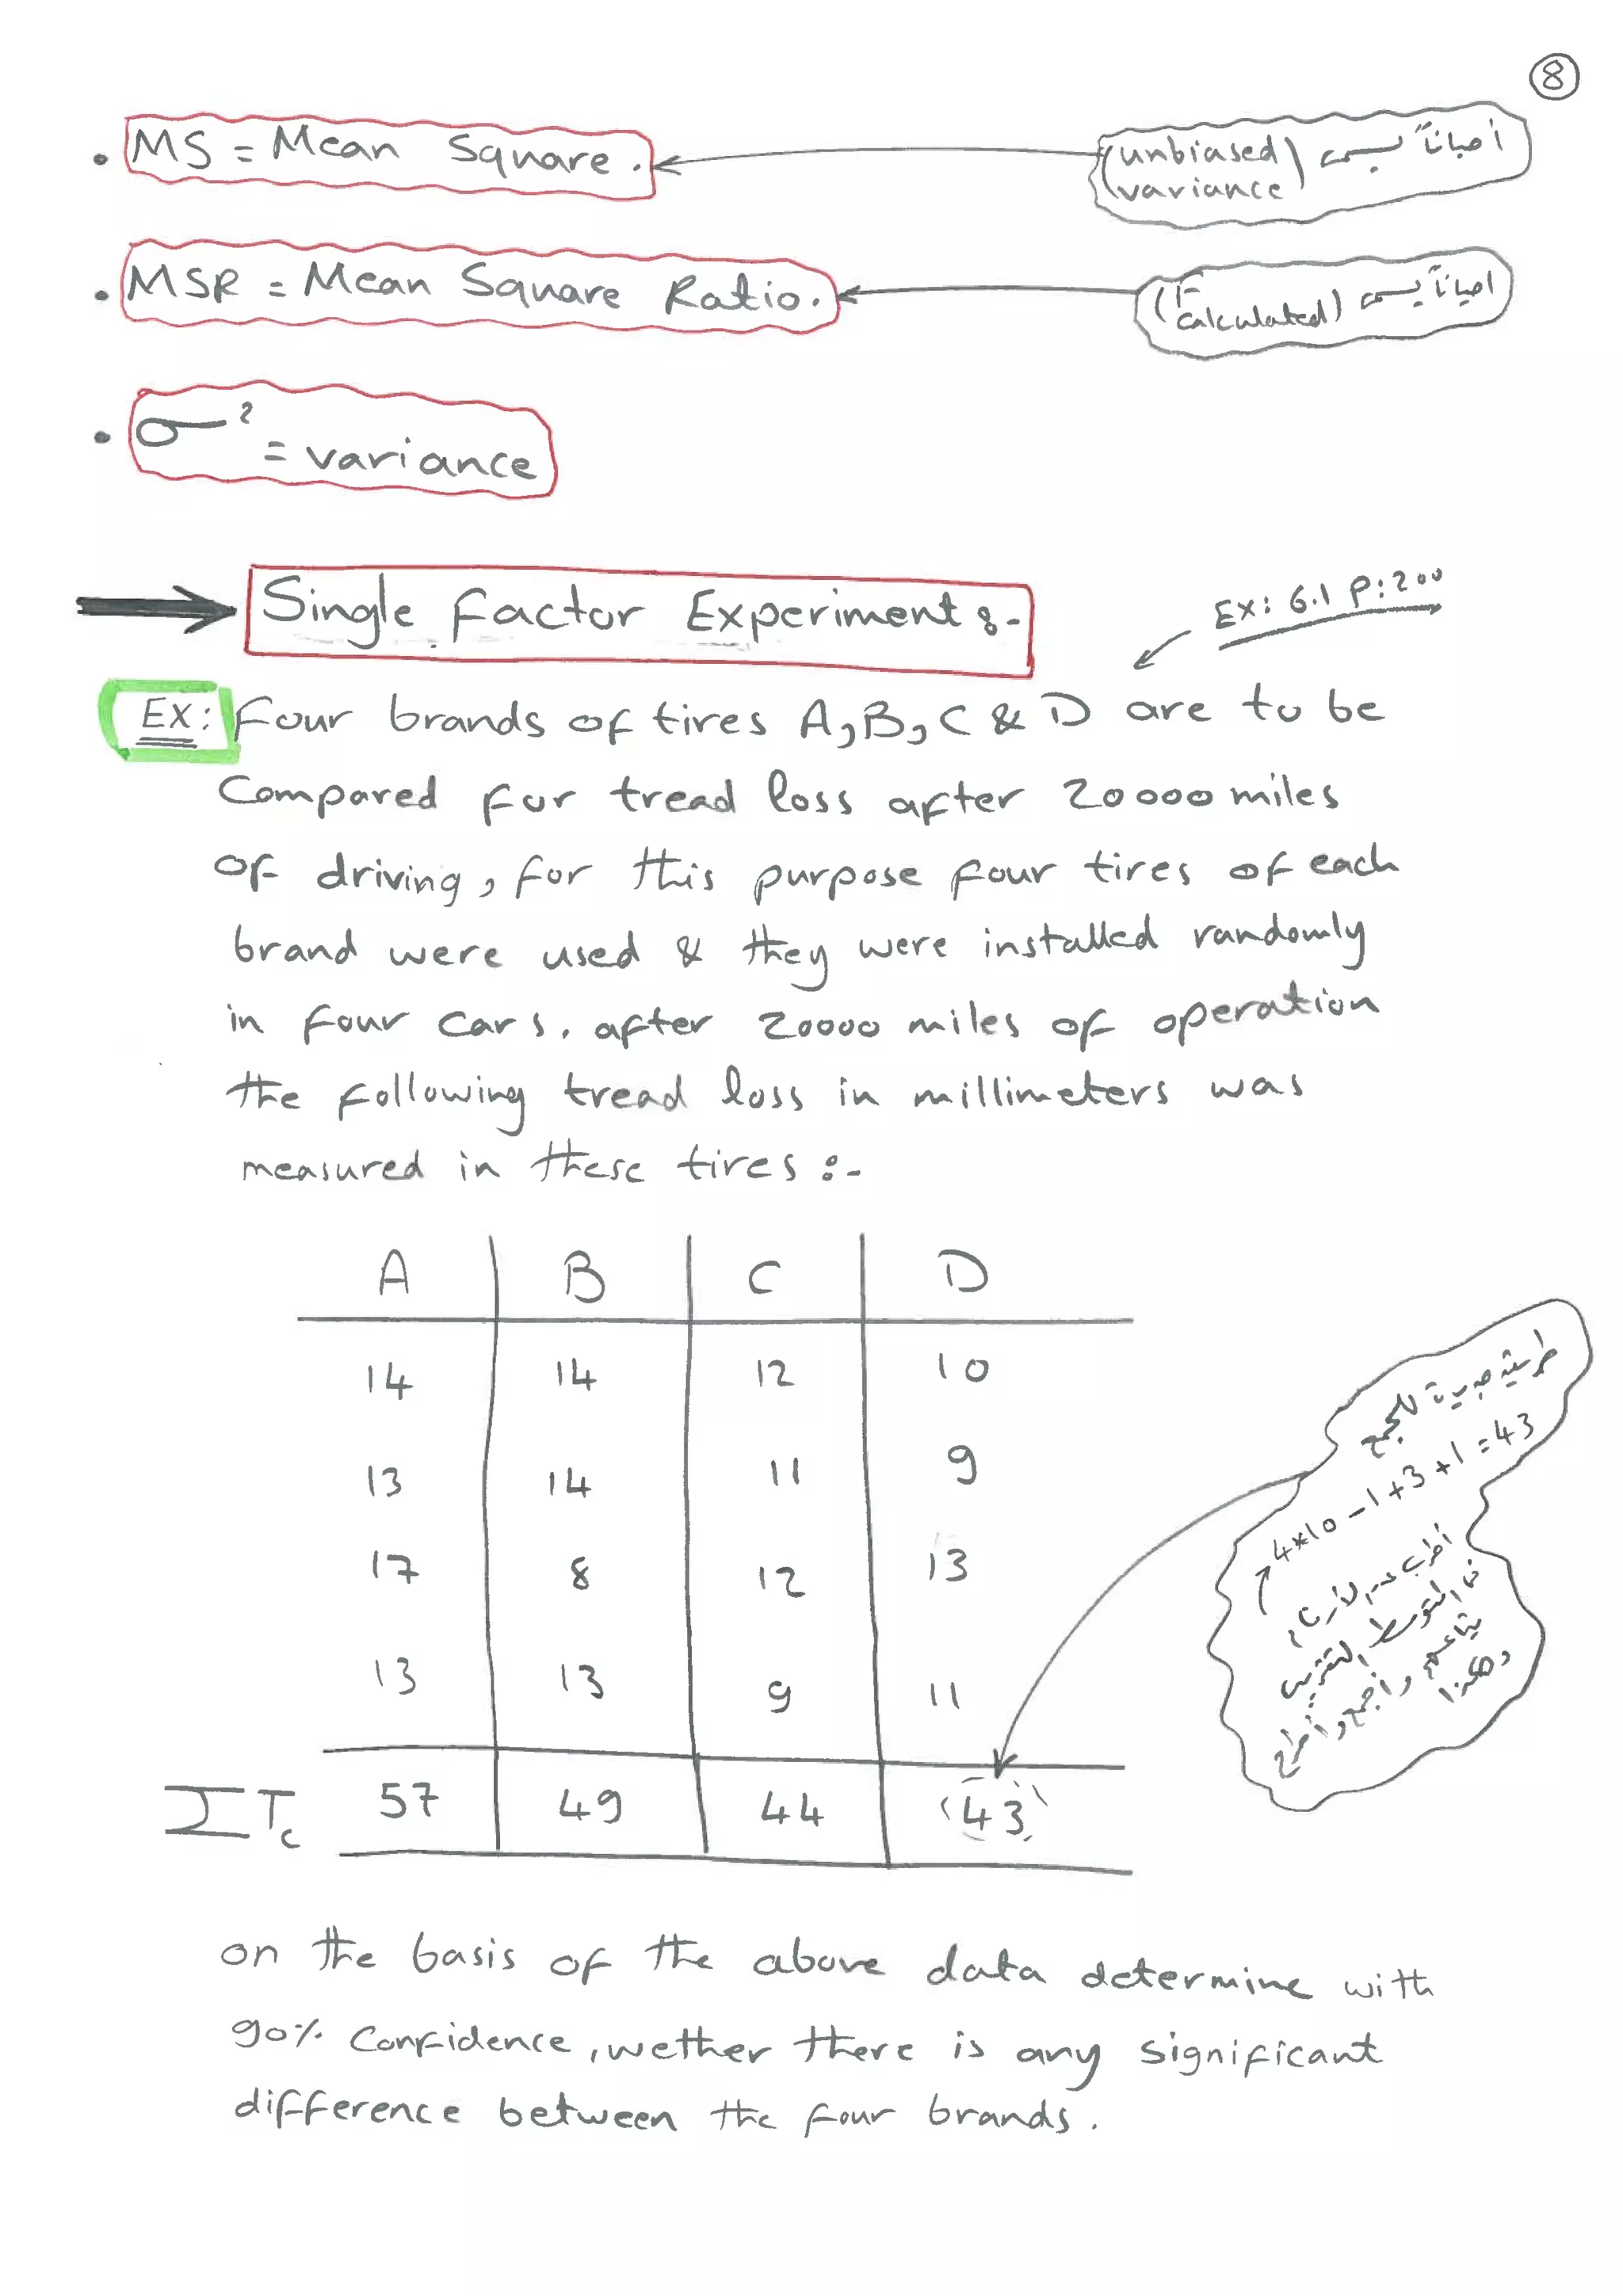 8
• MS = Mean Square.
أحياناً يسمى (unbiased
variance)
• MSR = Mean Square Ratio.
أحياناً يسمى (F
calculated)
• σ² = variance
Single factor Experiment :-
EX: 6.1 P:200
EX: Four brands of tires A, B, C & D are to be
Compared for tread loss after 20000 miles
of driving, for this purpose four tires of each
brand were used & they were installed randomly
in four cars. after 20000 miles of operation
the following tread loss in millimeters was
measured in these tires :-
A B C D
14 14 12 10
13 14 11 9
17 8 12 13
13 13 9 11
ΣTc 57 49 44 (43)
طريقة جديدة للجمع
4*10 - 1 + 3 + 1 = 43
أضرب عدد الأرقام
في المتوسط التقريبي
وأجمع وأطرح
وهكذا
on the basis of the above data determine with
90% Confidence, wether there is any significant
difference between the four brands.